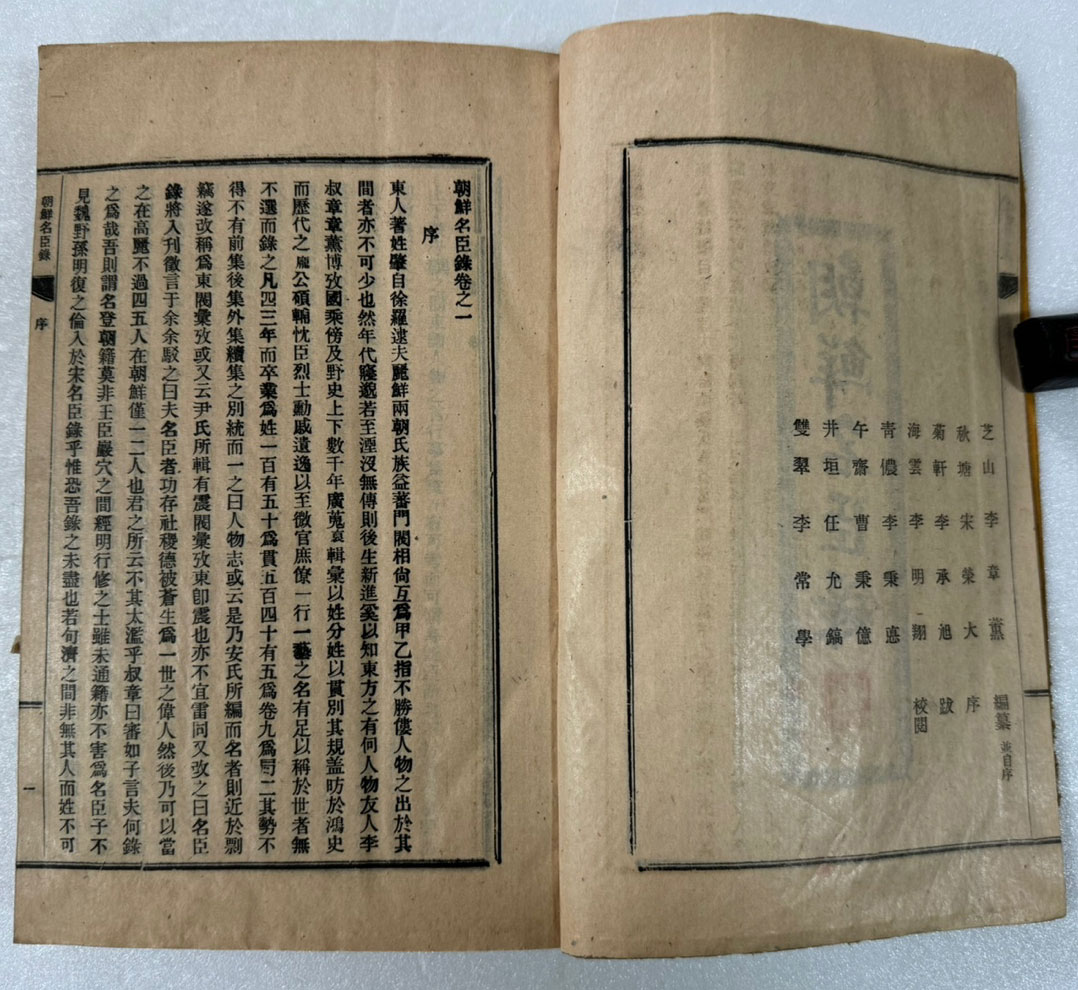 芝山 李章薰 編纂 並自序
秋塘 宋榮大 序
菊軒 李承旭 跋
海雲 李明翔 校閱
靑儂 李秉惪
午齋 曹秉億
井垣 任允鎬
雙翠 李常學
朝鮮名臣錄卷之一
序
東人著姓肇自徐羅逮夫麗鮮兩朝氏族益蕃門閥相尙互爲甲乙指不勝僂人物之出於其
間者亦不可少也然年代寖邈若至湮沒無傳則後生新進奚以知東方之有何人物友人李
叔章章薰博攷國乘傍及野史上下數千年廣蒐裒輯彙以姓分姓以貫別其規盖昉於鴻史
而歷代之厖公碩輔忱臣烈士勳戚遺逸以至微官庶僚一行一藝之名有足以稱於世者無
不選而錄之凡四三年而卒業爲姓一百有五十爲貫五百四十有五爲卷九爲局二其勢不
得不有前集後集外集續集之別統而一之曰人物志或云是乃安氏所編而名者則近於剽
竊遂改稱爲東閣彙攷或又云尹氏所輯有震閣彙攷東卽震也亦不宜雷同又改之曰名臣
錄將入刊徵言于余余駁之曰夫名臣者功存社稷德被蒼生爲一世之偉人然後乃可以當
之在高麗不過四五人在朝鮮僅一二人也君之所云不其太濫乎叔章曰審如子言夫何錄
之爲哉吾則謂名登朝籍莫非王臣巖穴之間經明行修之士雖未通籍亦不害爲名臣子不
見魏野孫明復之倫入於宋名臣錄乎惟恐吾錄之未盡也若句濟之間非無其人而姓不可
朝鮮名臣錄
序
一